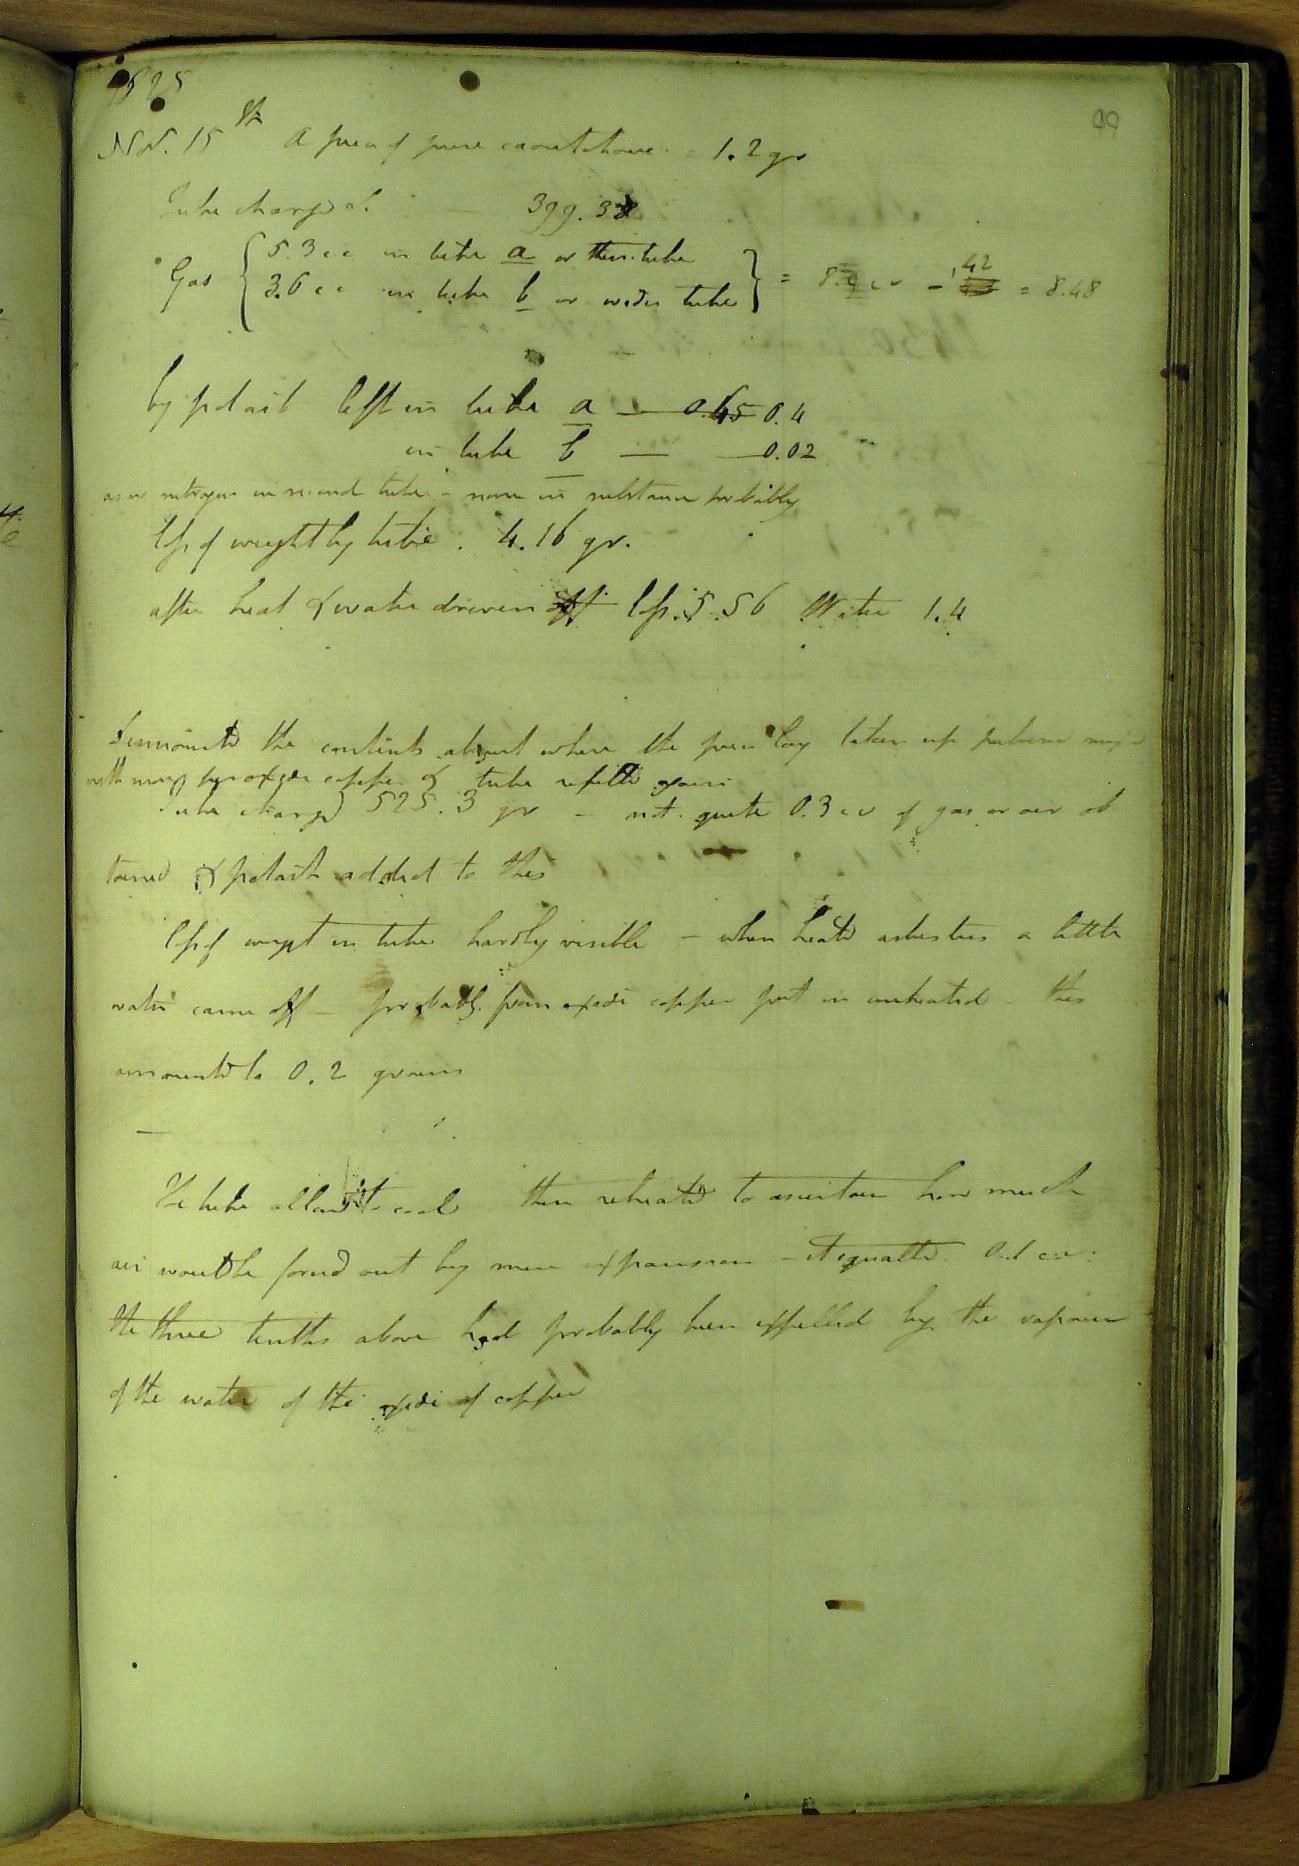 1825
99
Nov. 15th A piece of pure caoutchouc = 1.2 gr
Tube charged 399.38
Gas { 5.3 cc in tube a or thin tube
3.6 cc in tube b or wider tube } = 8.9 cc - .42 = 8.48
by potash left in tube a — 0.45 0.4
in tube b — 0.02
nitrogen in second tube - none in substance probably
loss of weight by tube . 4.16 gr.
after heat & water driven off loss 5.56 Water 1.4
the contents about where the piece lay taken up
with more per oxide copper & tube refilled again
Tube charged 525.3 gr - not quite 0.3 cc of gas or air ob
tained & potash added to this
loss of weight in tube hardly visible - when heated asbestus a little
water came off - probably from oxide copper put in unheated - this
amounted to 0.2 grains
The tube allowed to cool then reheated to ascertain how much
air would be forced out by mere expansion - it equalled 0.1 cc.
The three tenths above had probably been expelled by the vapour
of the water of the oxide of copper